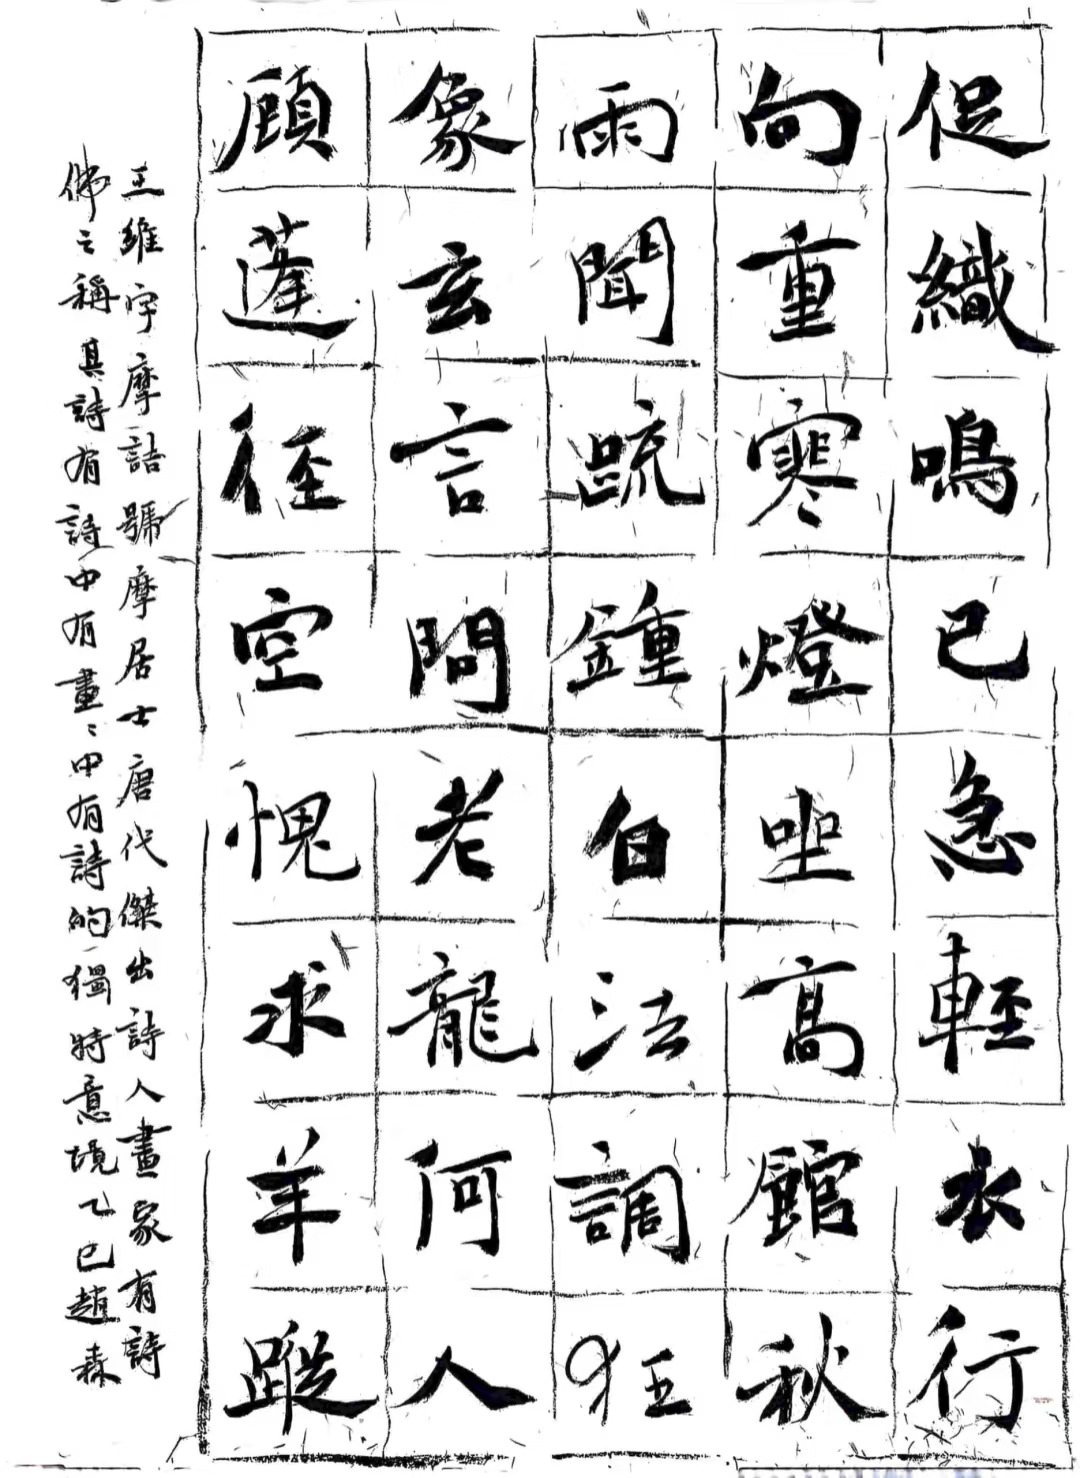 促織鳴已急輕衣行
向重寒燈坐高館秋
雨聞疏鐘白法調狂
象玄言問老龍何人
顧蓬徑空愧求羊蹤
王維字摩詰號摩居士唐代傑出詩人畫家有詩
佛之稱其詩有詩中有畫〻中有詩的獨特意境乙巳趙森